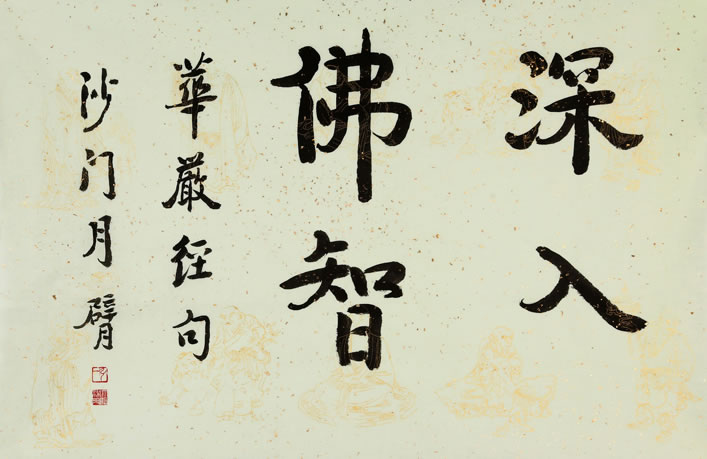 深入
佛智
華嚴经句
沙门月臂